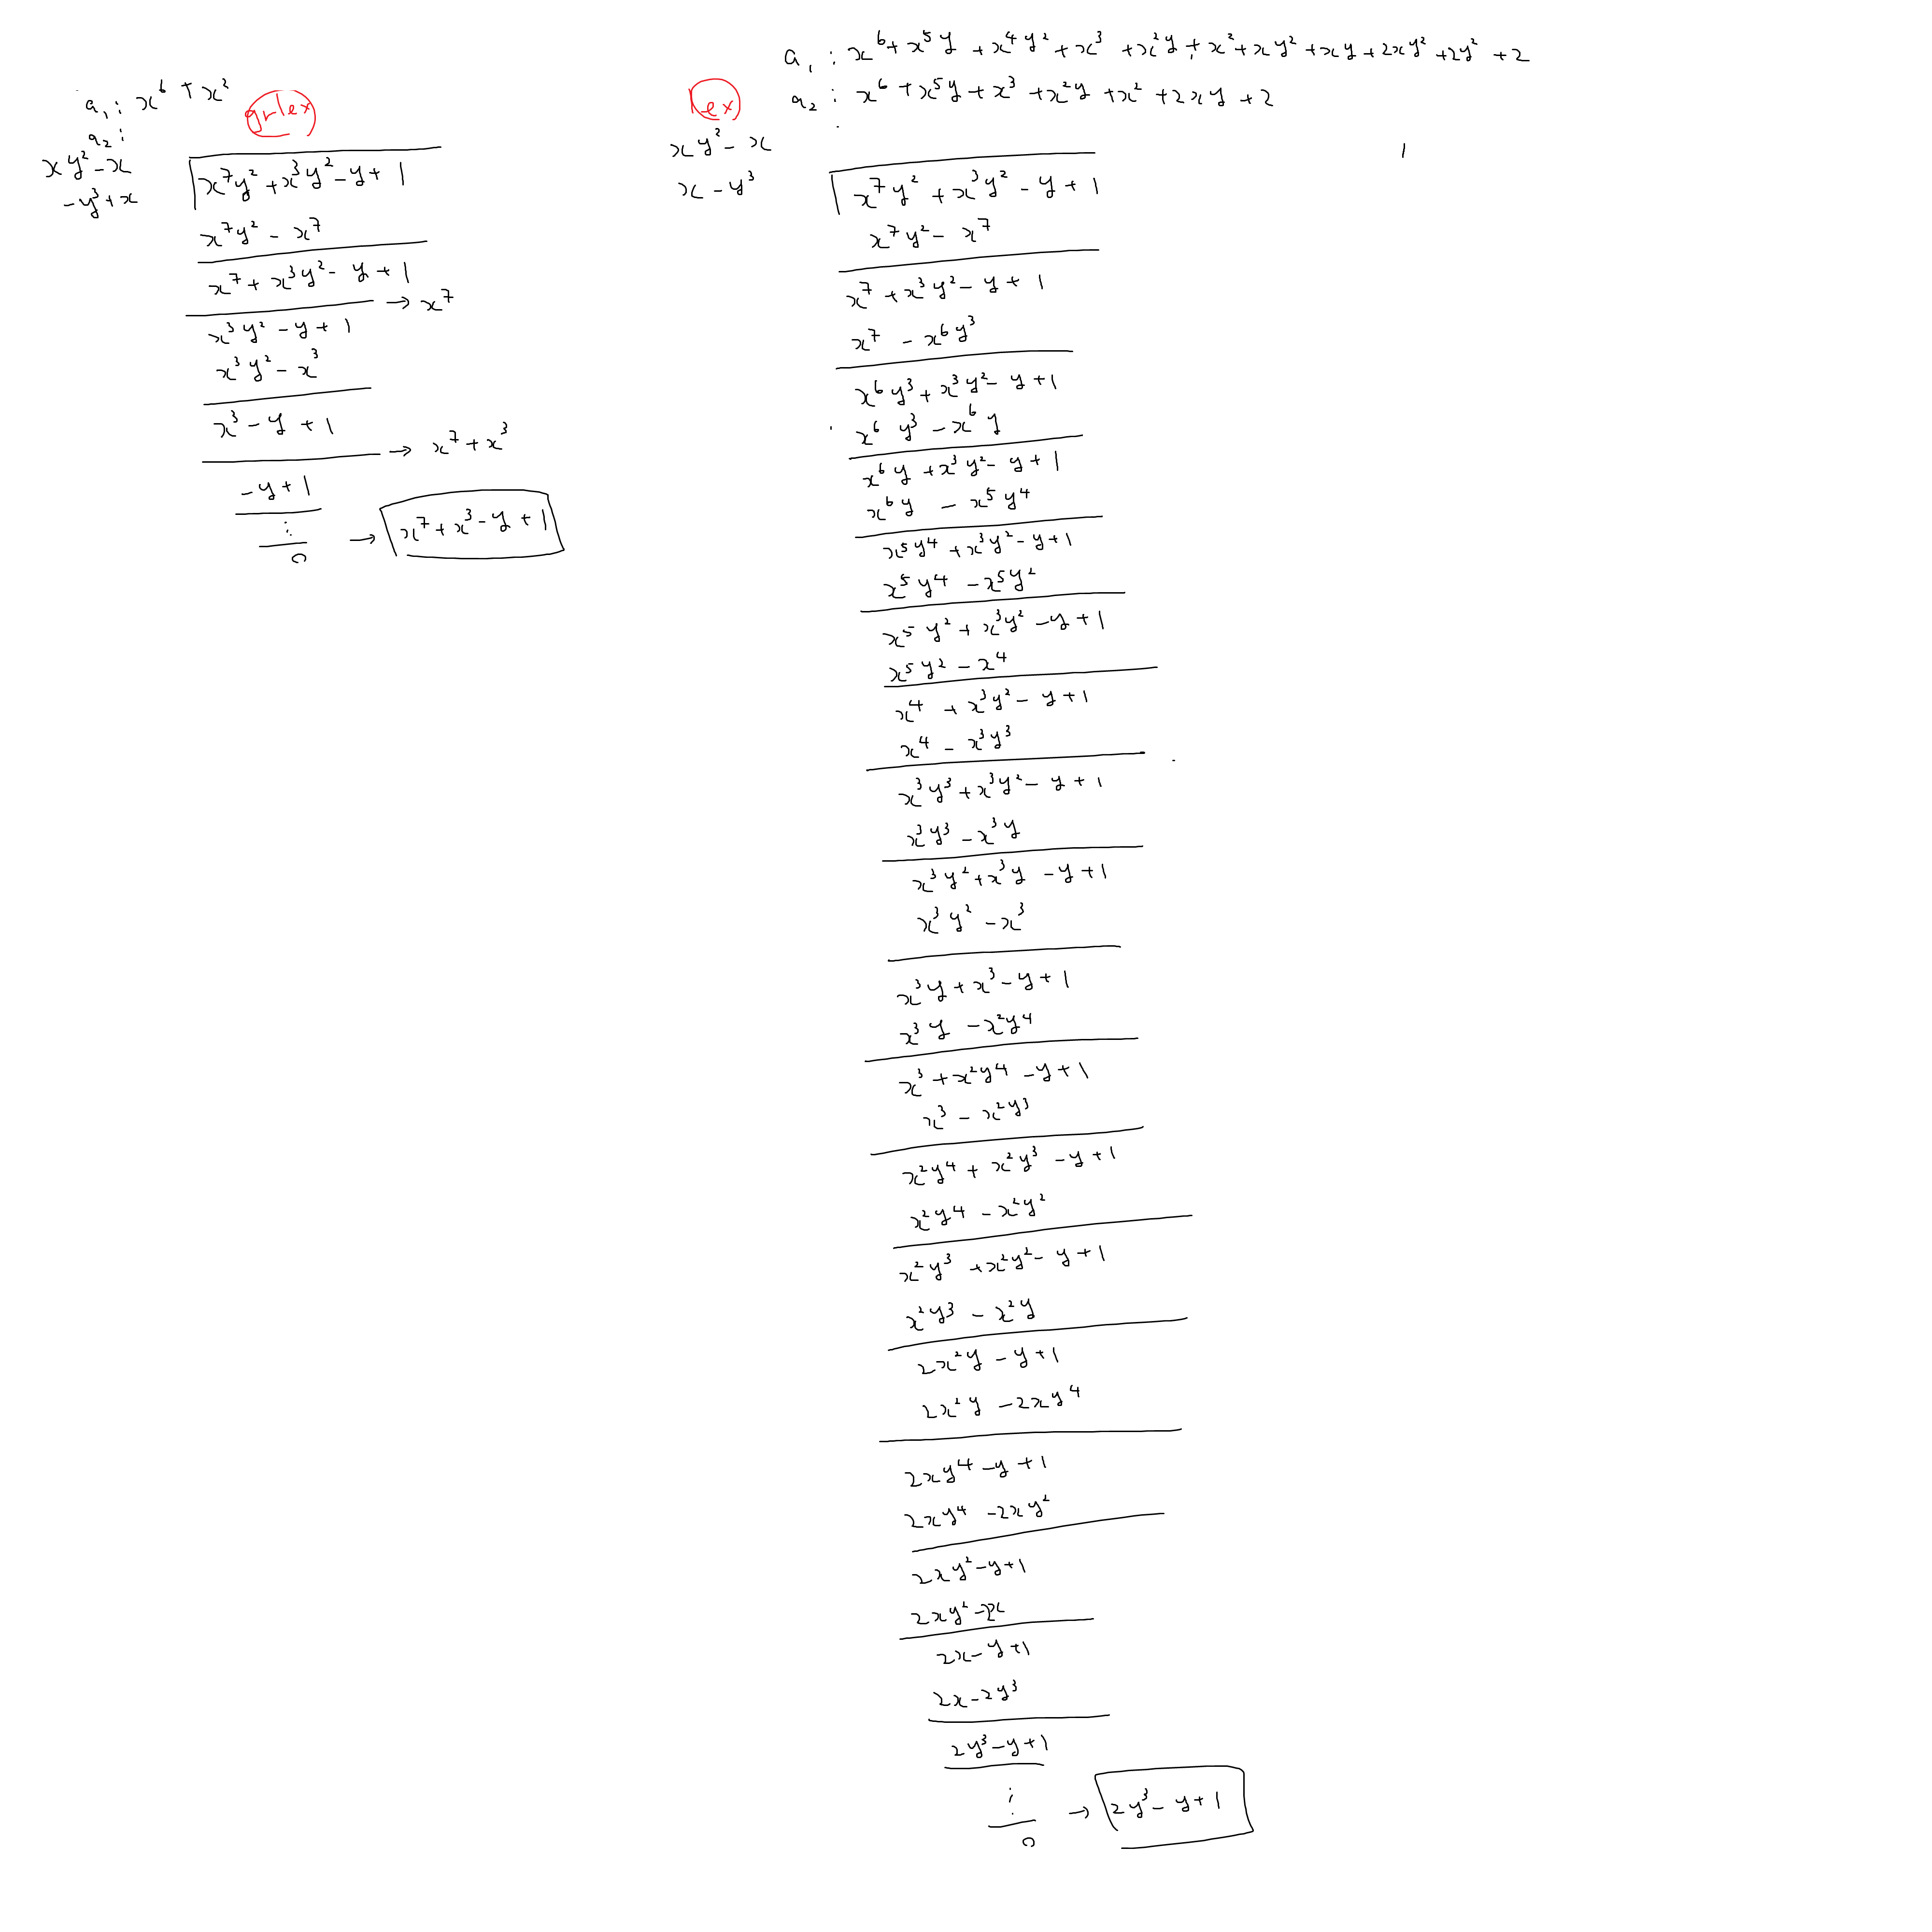 a₁ : x⁶ + x²
a₂ :
grlex
xy² - x
-y³ + x
x⁷y² + x³y² - y + 1
x⁷y² - x⁷
x⁷ + x³y² - y + 1
→ x⁷
x³y² - y + 1
x³y² - x³
x³ - y + 1
→ x⁷ + x³
-y + 1
⋮
0
→ x⁷ + x³ - y + 1
a₁ : x⁶ + x⁵y + x⁴y² + x³ + x²y + x² + xy² + xy + 2xy² + 2y² + 2
a₂ : x⁶ + x⁵y + x³ + x²y + x² + 2xy + 2
lex
xy² - x
x - y³
1
x⁷y² + x³y² - y + 1
x⁷y² - x⁷
x⁷ + x³y² - y + 1
x⁷ - x⁶y³
x⁶y³ + x³y² - y + 1
x⁶y³ - x⁶y
x⁶y + x³y² - y + 1
x⁶y - x⁵y⁴
x⁵y⁴ + x³y² - y + 1
x⁵y⁴ - x⁵y²
x⁵y² + x³y² - y + 1
x⁵y² - x⁴
x⁴ + x³y² - y + 1
x⁴ - x³y³
x³y³ + x³y² - y + 1
x³y³ - x³y
x³y² + x³y - y + 1
x³y² - x³
x³y + x³ - y + 1
x³y - x²y⁴
x³ + x²y⁴ - y + 1
x³ - x²y³
x²y⁴ + x²y³ - y + 1
x²y⁴ - x²y²
x²y³ + x²y² - y + 1
x²y³ - x²y
2x²y - y + 1
2x²y - 2xy⁴
2xy⁴ - y + 1
2xy⁴ - 2xy²
2xy² - y + 1
2xy² - 2x
2x - y + 1
2x - 2y³
2y³ - y + 1
⋮
0
→ 2y³ - y + 1